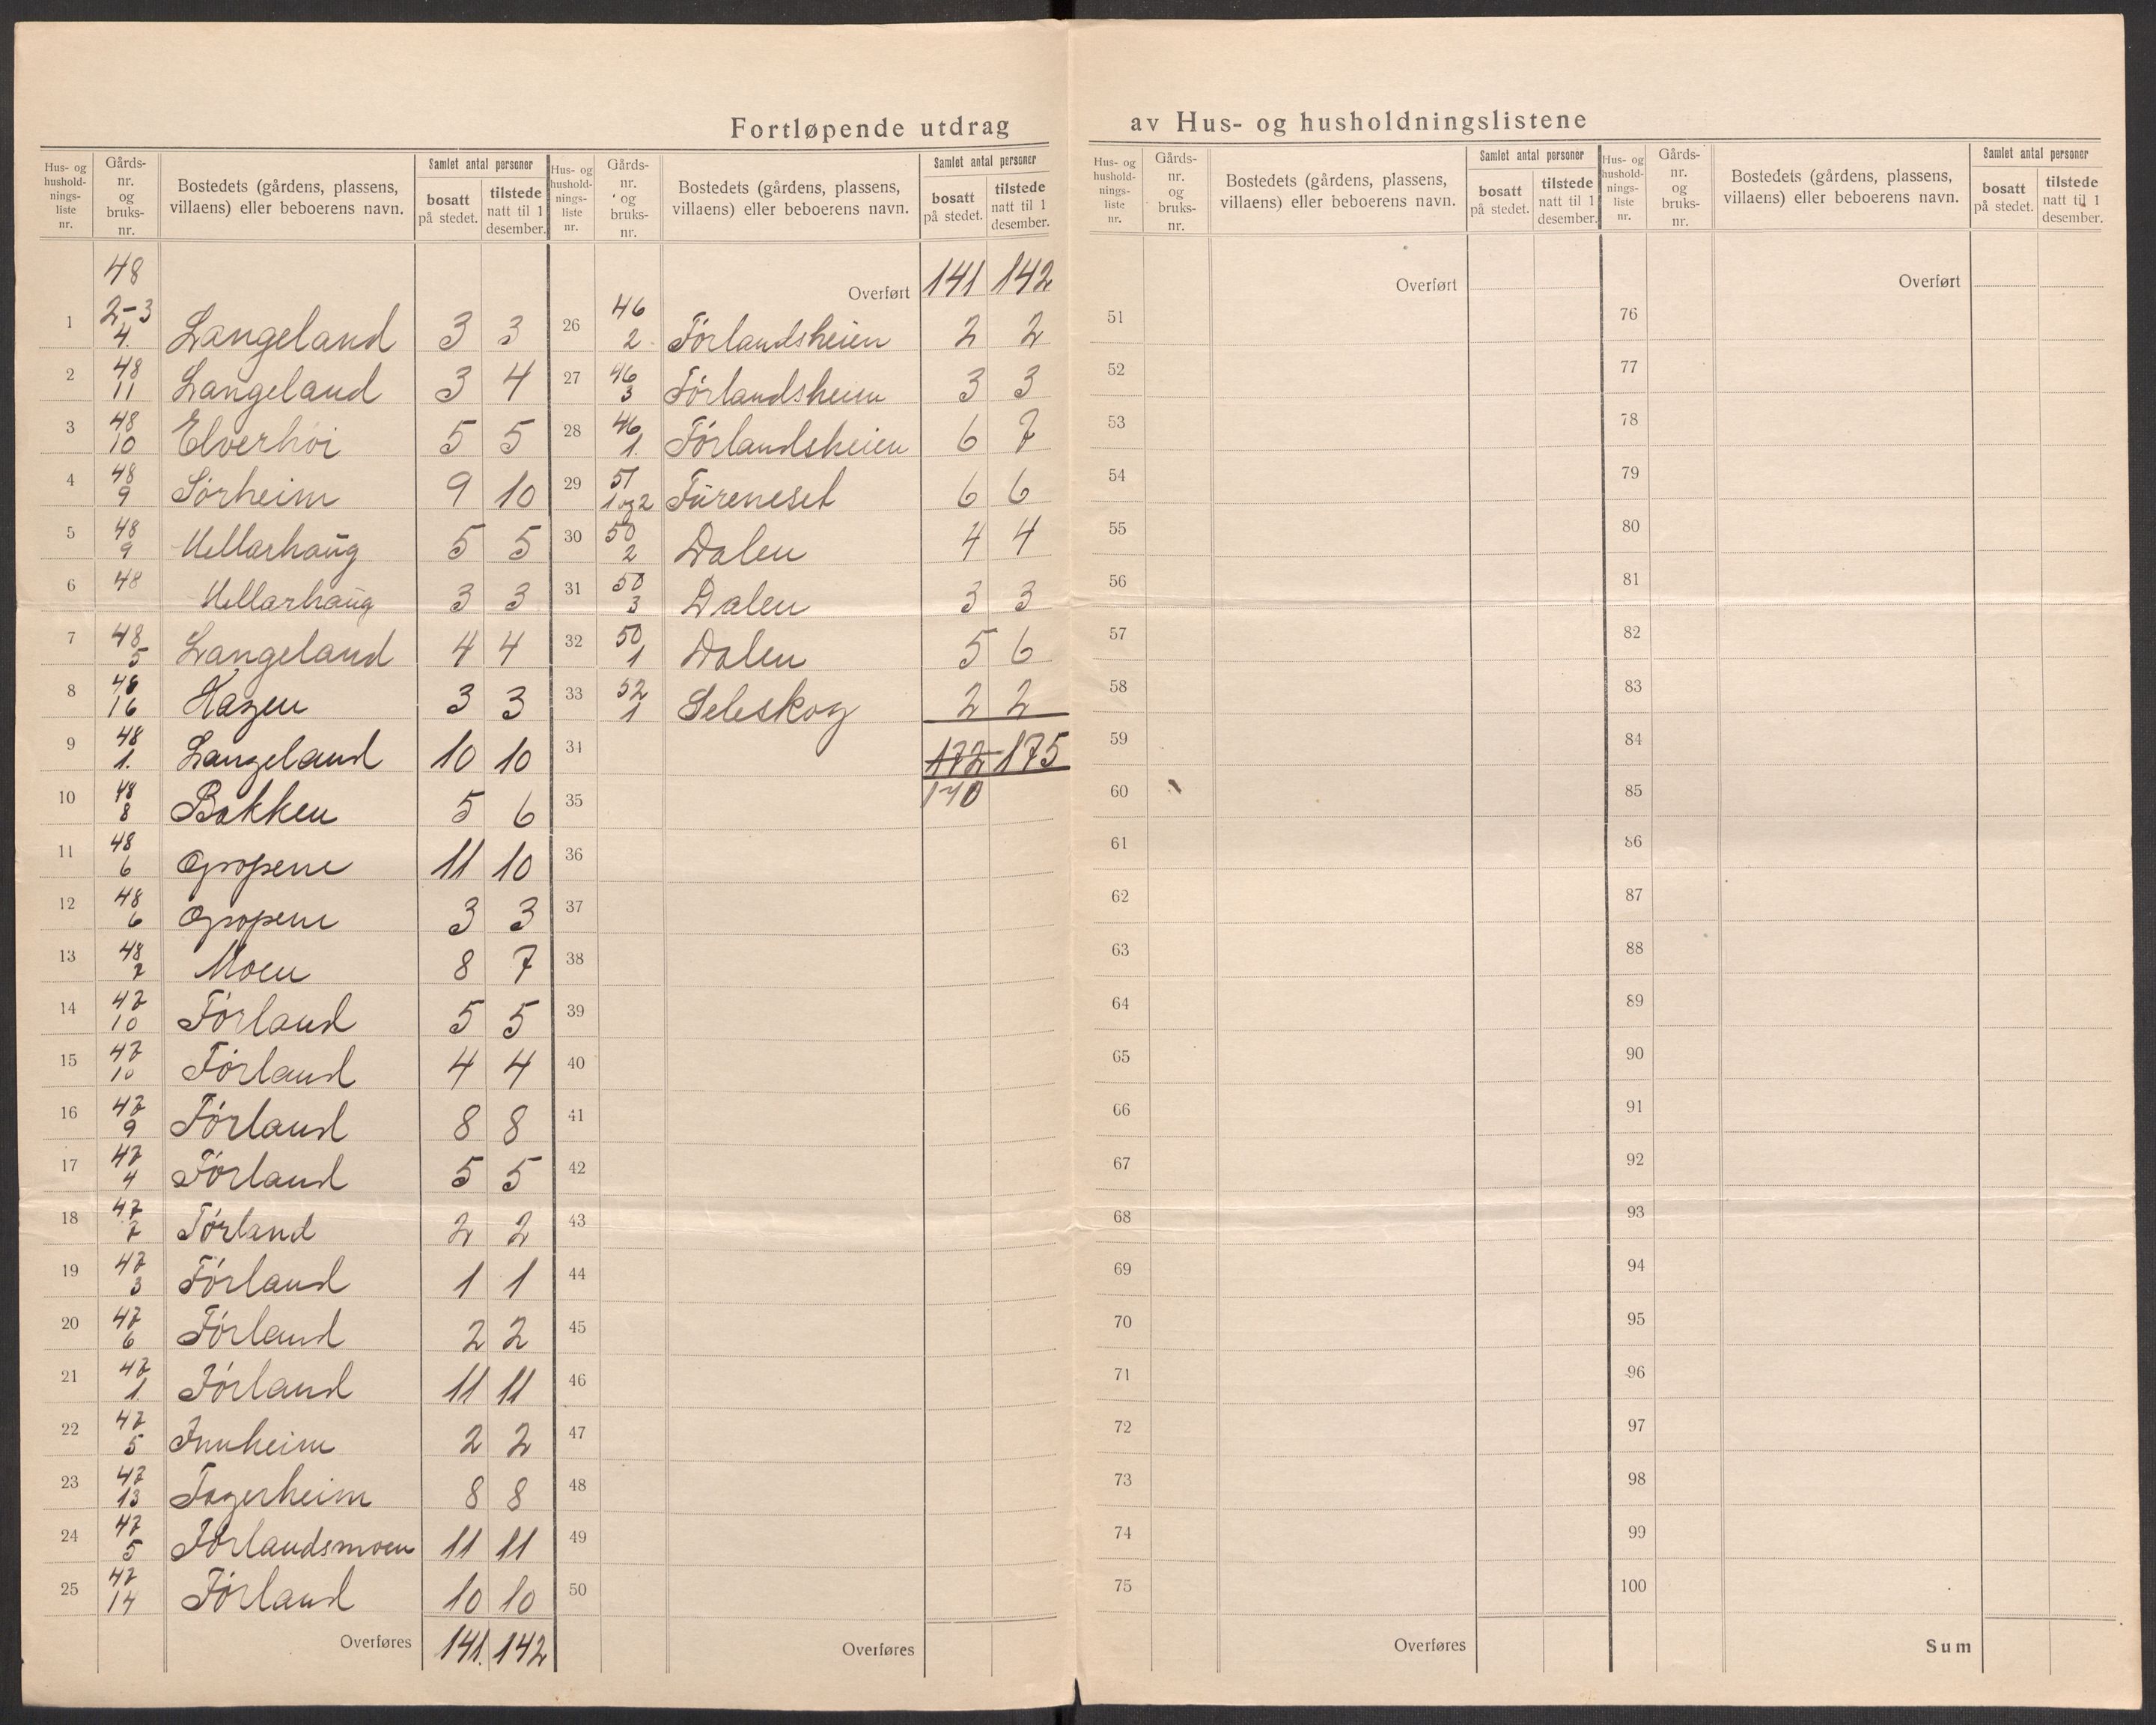 Fortløpende utdrag av Hus- og husholdningslistene
Hus- og hushold-nings-liste nr. | Gårds-nr. og bruks-nr. | Bostedets (gårdens, plassens, villaens) eller beboerens navn. | Samlet antal personer | bosatt på stedet. | tilstede natt til 1 desember.
1 | 48 2-3 4. | Langeland | 3 | 3
2 | 48 11 | Langeland | 3 | 4
3 | 48 10 | Elverhöi | 5 | 5
4 | 48 9 | Sørheim | 9 | 10
5 | 48 9 | Hellarhaug | 5 | 5
6 | 48 | Hellarhaug | 3 | 3
7 | 48 5 | Langeland | 4 | 4
8 | 48 16 | Hagen | 3 | 3
9 | 48 1. | Langeland | 10 | 10
10 | 48 8 | Bakken | 5 | 6
11 | 48 6 | Gropene | 11 | 10
12 | 48 6 | Gropene | 3 | 3
13 | 48 7 | Moen | 8 | 7
14 | 47 10 | Förland | 5 | 5
15 | 47 10 | Förland | 4 | 4
16 | 47 9 | Förland | 8 | 8
17 | 47 4 | Förland | 5 | 5
18 | 47 7 | Förland | 2 | 2
19 | 47 3 | Förland | 1 | 1
20 | 47 6 | Förland | 2 | 2
21 | 47 1. | Förland | 11 | 11
22 | 47 5 | Innheim | 2 | 2
23 | 47 13 | Fagerheim | 8 | 8
24 | 47 5 | Förlandsmoen | 11 | 11
25 | 47 14 | Förland | 10 | 10
Overføres | 141. | 142
Hus- og hushold-nings-liste nr. | Gårds-nr. og bruks-nr. | Bostedets (gårdens, plassens, villaens) eller beboerens navn. | Samlet antal personer | bosatt på stedet. | tilstede natt til 1 desember.
Overført | 141 | 142
26 | 46 2. | Förlandsheien | 2 | 2
27 | 46 3 | Förlandsheien | 3 | 3
28 | 46 1. | Förlandsheien | 6 | 7
29 | 51 1 og 2 | Fureneset | 6 | 6
30 | 50 2 | Dalen | 4 | 4
31 | 50 3 | Dalen | 3 | 3
32 | 50 1 | Dalen | 5 | 6
33 | 52 1 | Seleskog | 2 | 2
34 | 172 | 175
35 | 170
36
37
38
39
40
41
42
43
44
45
46
47
48
49
50
Overføres
Hus- og hushold-nings-liste nr. | Gårds-nr. og bruks-nr. | Bostedets (gårdens, plassens, villaens) eller beboerens navn. | Samlet antal personer | bosatt på stedet. | tilstede natt til 1 desember.
Overført
51
52
53
54
55
56
57
58
59
60
61
62
63
64
65
66
67
68
69
70
71
72
73
74
75
Overføres
Hus- og hushold-nings-liste nr. | Gårds-nr. og bruks-nr. | Bostedets (gårdens, plassens, villaens) eller beboerens navn. | Samlet antal personer | bosatt på stedet. | tilstede natt til 1 desember.
Overført
76
77
78
79
80
81
82
83
84
85
86
87
88
89
90
91
92
93
94
95
96
97
98
99
100
Sum